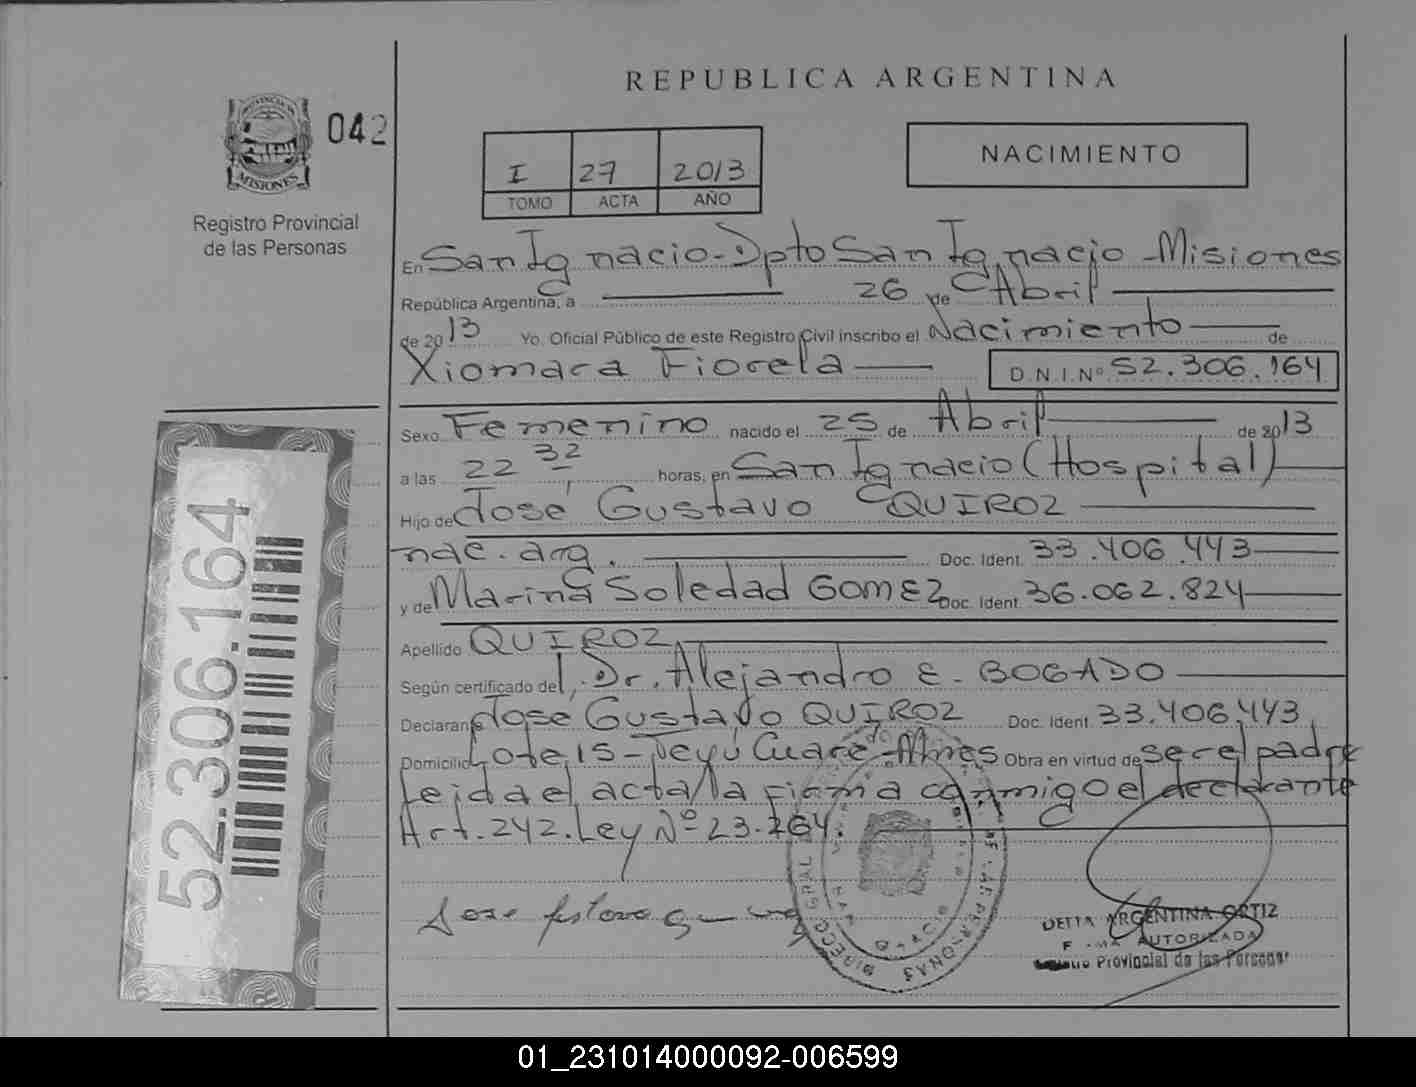 REPUBLICA ARGENTINA
042
MISIONES
Registro Provincial
de las Personas
I 27 2013
TOMO ACTA AÑO
NACIMIENTO
En San Ignacio - Dpto San Ignacio - Misiones
República Argentina, a 26 de Abril
de 2013 Yo. Oficial Público de este Registro Civil inscribo el Nacimiento de
Xiomara Fiorela D.N.I.Nº 52.306.164
Sexo Femenino nacido el 25 de Abril de 2013
a las 22 32 horas, en San Ignacio (Hospital)
Hijo de José Gustavo QUIROZ
nac. arg. Doc. Ident. 33.406.443
y de Marina Soledad GOMEZ Doc. Ident. 36.062.824
Apellido QUIROZ
Según certificado del Dr. Alejandro E. BOGADO
Declarante José Gustavo QUIROZ Doc. Ident. 33.406.443
Domicilio Lote 15 - Teyú Cuaré - Mnes Obra en virtud de ser el padre
Leida el acta la firma conmigo el declarante
Art. 242. Ley Nº 23.264.
ARGENTINA ORTIZ
AUTORIZADA
Provincial de las Personas
52.306.164
01_231014000092-006599